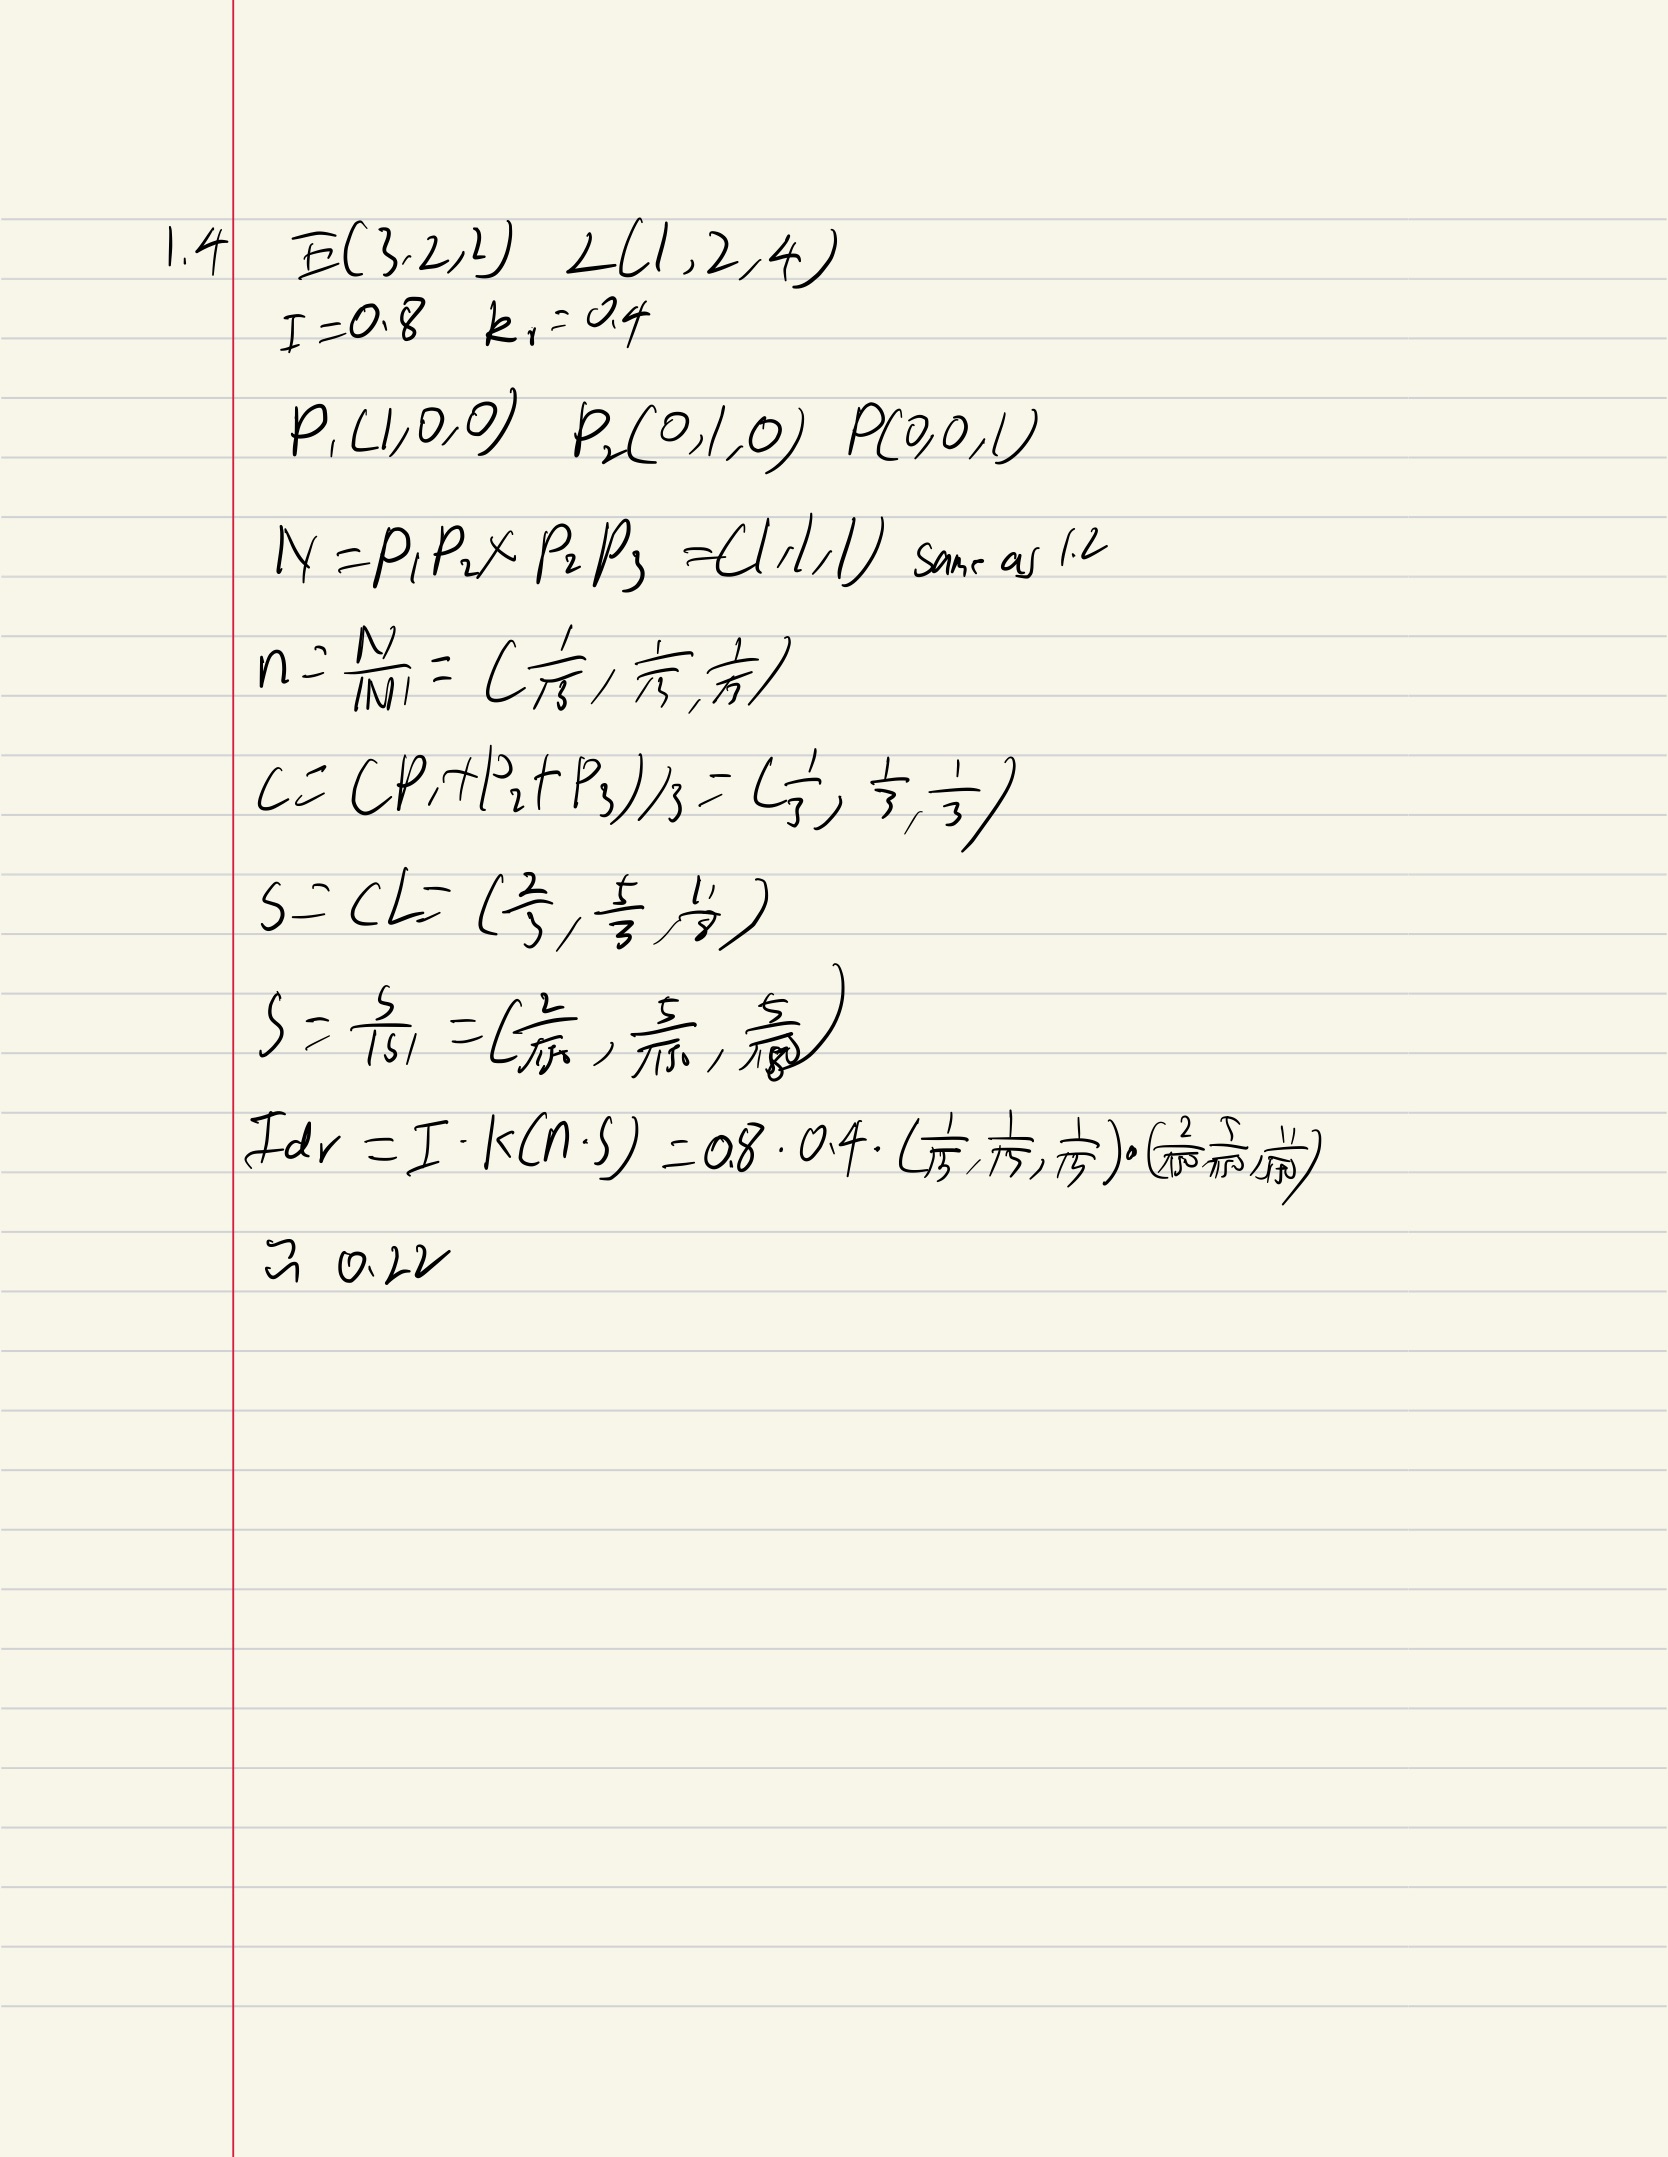 1.4 E(3,2,2) L(1,2,4)
I=0.8 kr=0.4
P₁(1,0,0) P₂(0,1,0) P(0,0,1)
N=P₁P₂×P₂P₃=(1,1,1) same as 1.2
n=N/|N|=(1/√3,1/√3,1/√3)
C=(P₁+P₂+P₃)/3=(1/3,1/3,1/3)
S=CL=(2/3,5/3,11/8)
S=S/|S|=(2/√150,5/√150,5/√180)
Idr=I·K(n·S)=0.8·0.4·(1/√3,1/√3,1/√3)·(2/√150,5/√150,11/√150)
≈0.22